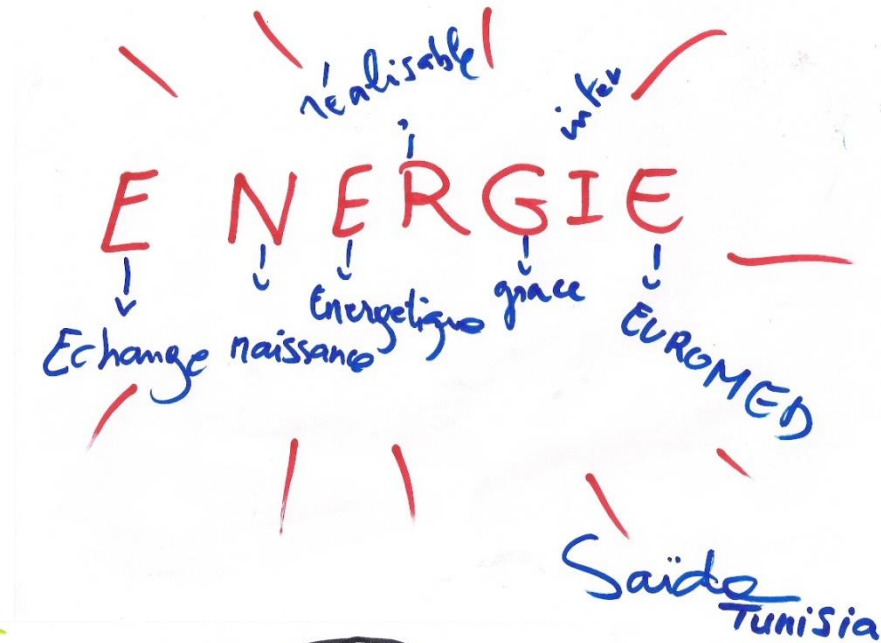 réalisable
inter
ENERGIE
Echange naissance Energetique grace EUROMED
Saïda
Tunisia